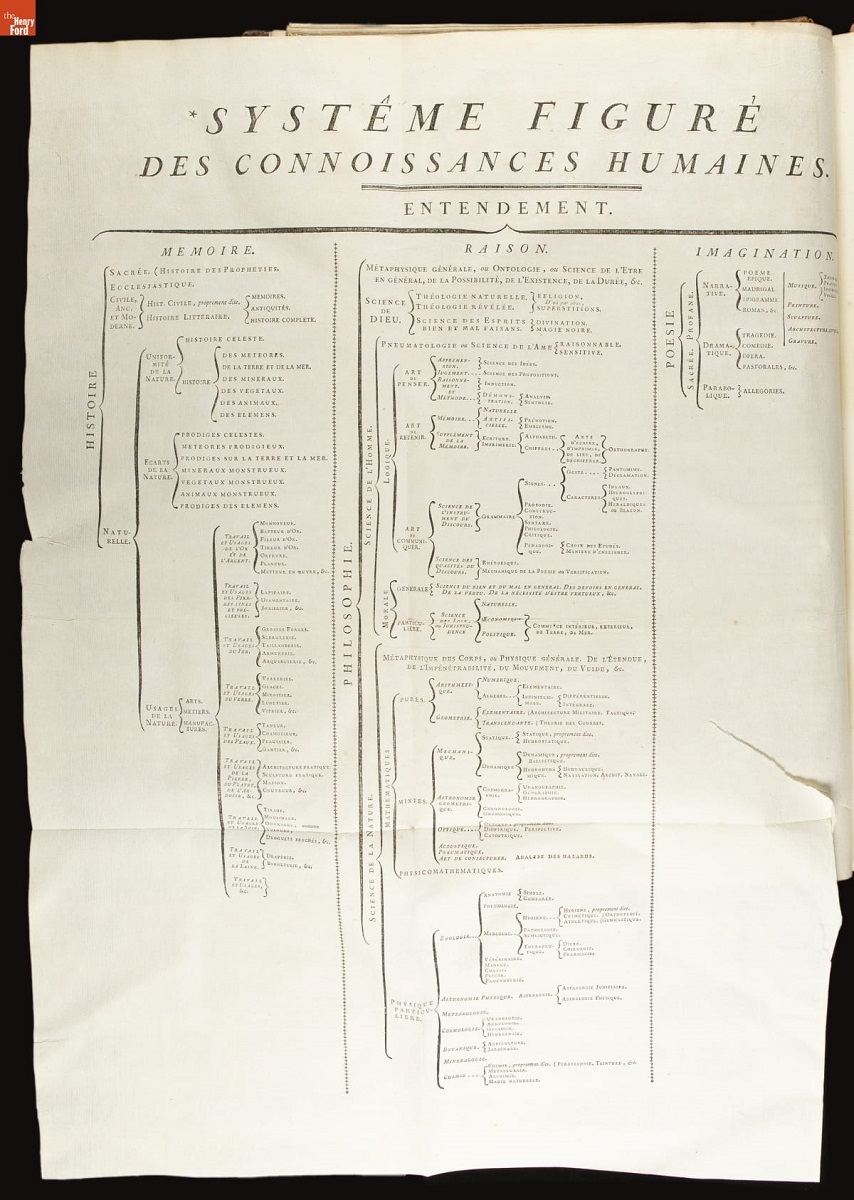 the
Henry
Ford
*SYSTÊME FIGURÉ
DES CONNOISSANCES HUMAINES.
ENTENDEMENT.
MEMOIRE.
HISTOIRE
SACRÉE. (HISTOIRE DES PROPHETIES.
ECCLESIASTIQUE.
CIVILE, ANC. ET MODERNE.
HIST. CIVILE, proprement dite.
HISTOIRE LITTÉRAIRE.
MÉMOIRES.
ANTIQUITÉS.
HISTOIRE COMPLETE.
NATURELLE.
UNIFORMITÉ DE LA NATURE.
HISTOIRE CELESTE.
HISTOIRE
DES METEORES.
DE LA TERRE ET DE LA MER.
DES MINERAUX.
DES VEGETAUX.
DES ANIMAUX.
DES ELEMENS.
ECARTS DE LA NATURE.
PRODIGES CELESTES.
METEORES PRODIGIEUX.
PRODIGES SUR LA TERRE ET LA MER.
MINERAUX MONSTRUEUX.
VEGETAUX MONSTRUEUX.
ANIMAUX MONSTRUEUX.
PRODIGES DES ELEMENS.
USAGES DE LA NATURE.
ARTS.
METIERS.
MANUFACTURES.
TRAVAIL ET USAGES DE L'OR ET DE L'ARGENT.
MONNOYEUR.
BATTEUR D'OR.
FILEUR D'OR.
TIREUR D'OR.
ORFEVRE.
PLANEUR.
METTEUR EN ŒUVRE, &c.
TRAVAIL ET USAGES DES PIERRES FINES ET PRÉCIEUSES.
LAPIDAIRE.
DIAMANTAIRE.
JOAILLIER, &c.
TRAVAIL ET USAGES DU FER.
GROSSES FORGES.
SERRURERIE.
TAILLANDERIE.
ARMURERIE.
ARQUEBUSERIE, &c.
TRAVAIL ET USAGES DU VERRE.
VERRERIE.
GLACES.
MIROITIER.
LUNETIER.
VITRIER, &c.
TRAVAIL ET USAGES DES PEAUX.
TANEUR.
CHAMOISEUR.
PEAUSSIER.
GANTIER, &c.
TRAVAIL ET USAGES DE LA PIERRE, DU PLATRE, DE L'ARDOISE, &c.
ARCHITECTURE PRATIQUE.
SCULPTURE PRATIQUE.
MASSON.
COUVREUR, &c.
TRAVAIL ET USAGES DE LA SOIE.
TIRAGE.
MOULINAGE.
TRAVAIL ET USAGES DE LA LAINE.
DRAPERIE.
BONNETERIE, &c.
TRAVAIL ET USAGES, &c.
RAISON.
PHILOSOPHIE.
MÉTAPHYSIQUE GÉNÉRALE, ou ONTOLOGIE, ou SCIENCE DE L'ETRE
EN GÉNÉRAL, DE LA POSSIBILITÉ, DE L'EXISTENCE, DE LA DURÉE, &c.
SCIENCE DE DIEU.
THÉOLOGIE NATURELLE.
THÉOLOGIE RÉVELÉE.
RELIGION,
D'où par abus,
SUPERSTITIONS.
SCIENCE DES ESPRITS BIEN ET MAL FAISANS.
DIVINATION.
MAGIE NOIRE.
SCIENCE DE L'HOMME.
PNEUMATOLOGIE ou SCIENCE DE L'AME
RAISONNABLE.
SENSITIVE.
LOGIQUE.
ART DE PENSER.
APPREHENSION.
SCIENCE DES IDÉES.
JUGEMENT....
SCIENCE DES PROPOSITIONS.
RAISONNEMENT.
INDUCTION.
ET METHODE...
DÉMONSTRATION.
ANALYSE.
SYNTHESE.
ART DE RETENIR.
MÉMOIRE...
NATURELLE
ARTIFICIELLE
PRÉNOTION.
EMBLEME.
SUPPLÉMENT DE LA MEMOIRE.
ECRITURE.
IMPRIMERIE.
ALPHABETH.
CHIFFRES..
ARTS D'ECRIRE, D'IMPRIMER, DE LIRE, DE DÉCHIFFRER.
ORTHOGRAPHE.
ART DE COMMUNIQUER.
SCIENCE DE L'INSTRUMENT DU DISCOURS.
GRAMMAIRE
SIGNES...
GESTE....
PANTOMIME.
DECLAMATION.
CARACTERES
IDEAUX.
HIEROGLYPHIQUES.
HERALDIQUES ou BLAZON.
PROSODIE.
CONSTRUCTION.
SYNTAXE.
PHILOLOGIE.
CRITIQUE.
PEDAGOGIQUE.
CHOIX DES ETUDES.
MANIERE D'ENSEIGNER.
SCIENCE DES QUALITÉS DU DISCOURS.
RHÉTORIQUE.
MECHANIQUE DE LA POESIE ou VERSIFICATION.
MORALE
GENERALE
SCIENCE DU BIEN ET DU MAL EN GENERAL. DES DEVOIRS EN GENERAL.
DE LA VERTU. DE LA NÉCESSITÉ D'ÊTRE VERTUEUX, &c.
PARTICULIERE.
SCIENCE DES LOIX ou JURISPRUDENCE
NATURELLE.
ŒCONOMIQUE.
POLITIQUE.
COMMERCE INTÉRIEUR, EXTERIEUR, DE TERRE, DE MER.
SCIENCE DE LA NATURE.
MÉTAPHYSIQUE DES CORPS, ou PHYSIQUE GÉNÉRALE. DE L'ÉTENDUE,
DE L'IMPÉNÉTRABILITÉ, DU MOUVEMENT, DU VUIDE, &c.
MATHÉMATIQUES
PURES.
ARITHMETIQUE.
NUMÉRIQUE.
ALGEBRE...
ELEMENTAIRE.
INFINITESIMALE.
DIFFÉRENTIELLE.
INTÉGRALE.
GEOMETRIE.
ELEMENTAIRE. (ARCHITECTURE MILITAIRE, TACTIQUE.
TRANSCENDANTE. (THEORIE DES COURBES.
MIXTES.
MECHANIQUE.
STATIQUE..
STATIQUE, proprement dite.
HYDROSTATIQUE.
DYNAMIQUE
DYNAMIQUE, proprement dite.
BALLISTIQUE.
HYDRODYNAMIQUE.
HYDRAULIQUE.
NAVIGATION, ARCHIT. NAVALE.
ASTRONOMIE GEOMETRIQUE.
COSMOGRAPHIE.
URANOGRAPHIE.
GEOGRAPHIE.
HYDROGRAPHIE.
CHRONOLOGIE.
GNOMONIQUE.
OPTIQUE....
OPTIQUE, proprement dite.
DIOPTRIQUE, PERSPECTIVE.
CATOPTRIQUE.
ACOUSTIQUE.
PNEUMATIQUE.
ART DE CONJECTURER. ANALYSE DES HAZARDS.
PHYSICOMATHEMATIQUES.
PHYSIQUE PARTICULIERE.
ZOOLOGIE...
ANATOMIE
SIMPLE.
COMPARÉE.
PHYSIOLOGIE.
MEDECINE...
HYGIENE...
HYGIENE, proprement dite.
COSMÉTIQUE. (ORTHOPEDIE.
ATHLÉTIQUE. (GYMNASTIQUE.
PATHOLOGIE.
SEMEIOTIQUE.
THERAPEUTIQUE.
DIETE.
CHIRURGIE.
PHARMACIE.
VÉTÉRINAIRE.
MANEGE.
CHASSE.
PESCHE.
FAUCONNERIE.
ASTRONOMIE PHYSIQUE. ASTROLOGIE.
ASTROLOGIE JUDICIAIRE.
ASTROLOGIE PHYSIQUE.
METEOROLOGIE.
COSMOLOGIE.
URANOLOGIE.
AEROLOGIE.
GEOLOGIE.
HYDROLOGIE.
BOTANIQUE.
AGRICULTURE.
JARDINAGE.
MINERALOGIE.
CHIMIE...
CHIMIE, proprement dite. (PYROTECHNIE. TEINTURE, &c.
METALLURGIE.
ALCHIMIE.
MAGIE NATURELLE.
IMAGINATION.
POESIE
SACRÉE, PROFANE.
NARRATIVE.
POEME EPIQUE.
MADRIGAL.
EPIGRAMME.
ROMAN, &c.
MUSIQUE.
PEINTURE.
SCULPTURE.
GRAVURE.
DRAMATIQUE.
TRAGEDIE.
COMEDIE.
OPERA.
PASTORALES, &c.
PARABOLIQUE.
ALLEGORIES.